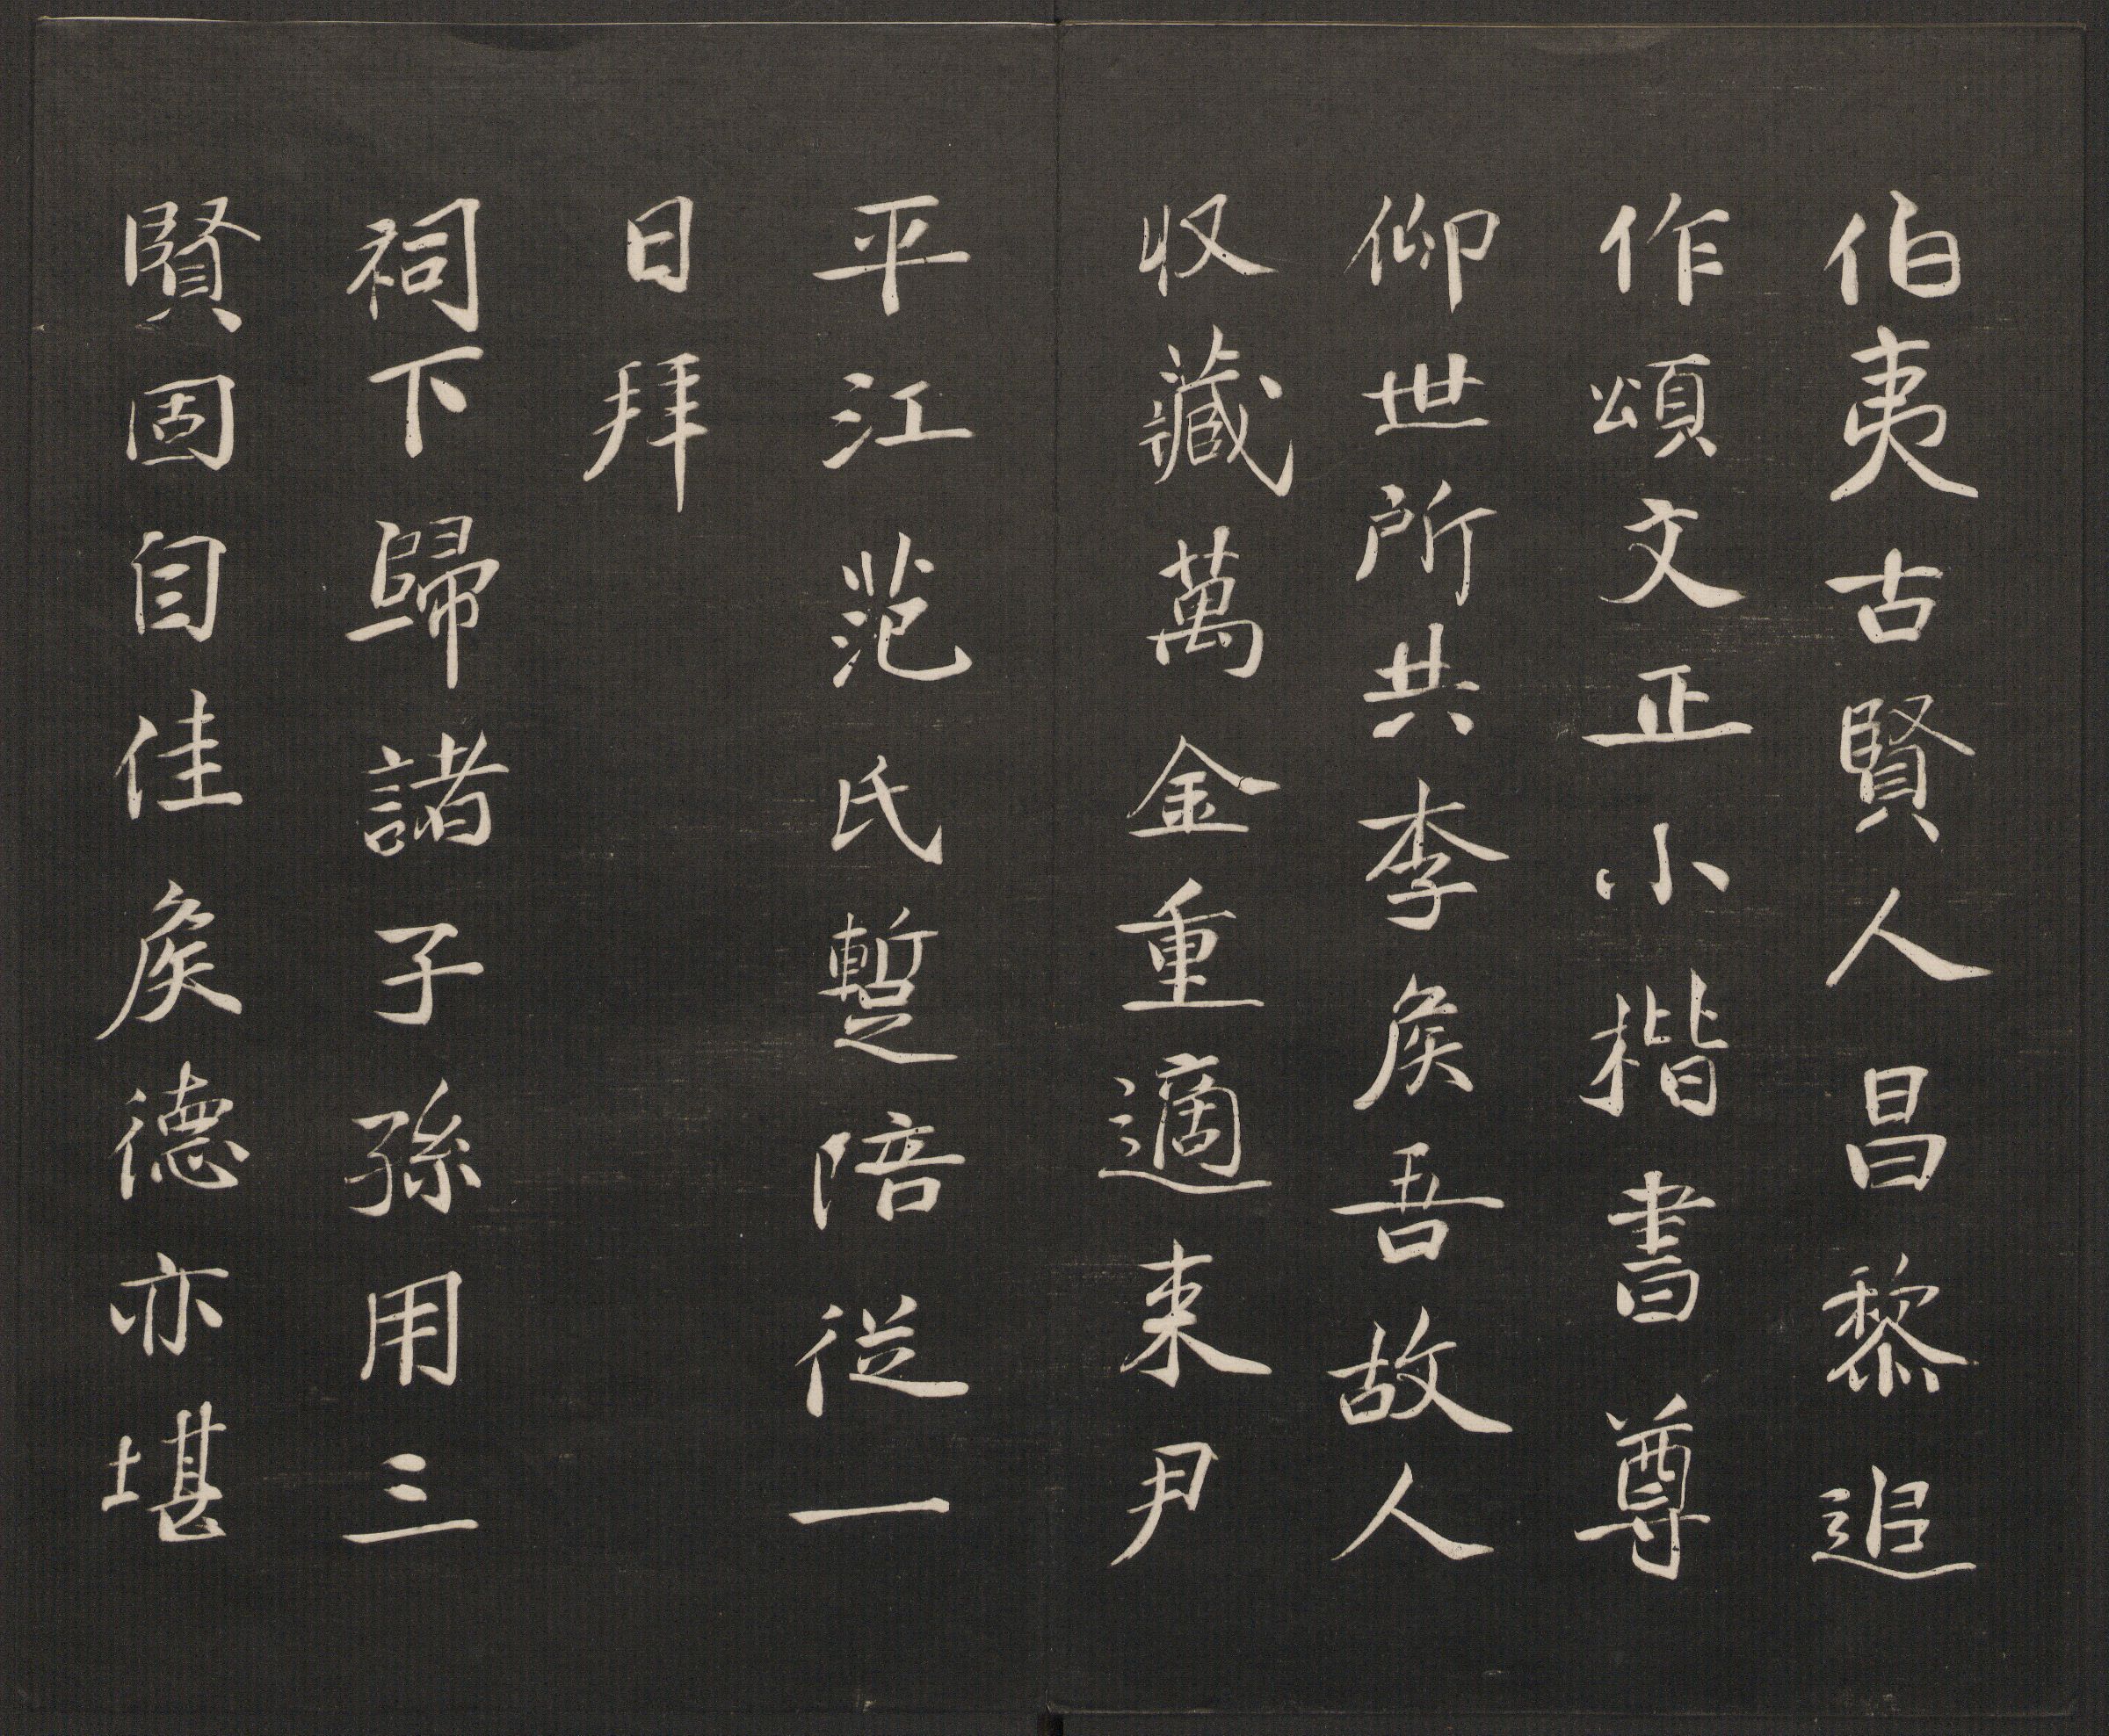 伯夷古賢人昌黎追
作頌文正小楷書尊
仰世所共李矦吾故人
収藏萬金重適来尹
平江范氏蹔陪從一
日拜
祠下歸諸子孫用三
賢固自佳矦德亦堪